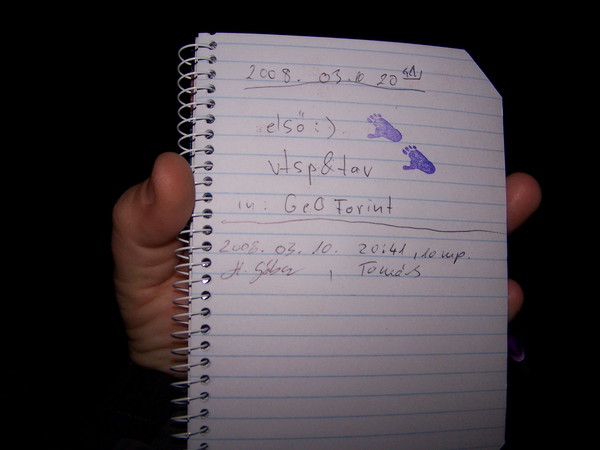 2008. 03. 10 20 41
első :)
vtsp&tav
in: GeO Forint
2008. 03. 10. 20:41, 10 mp.
H. Gábor, Tamás